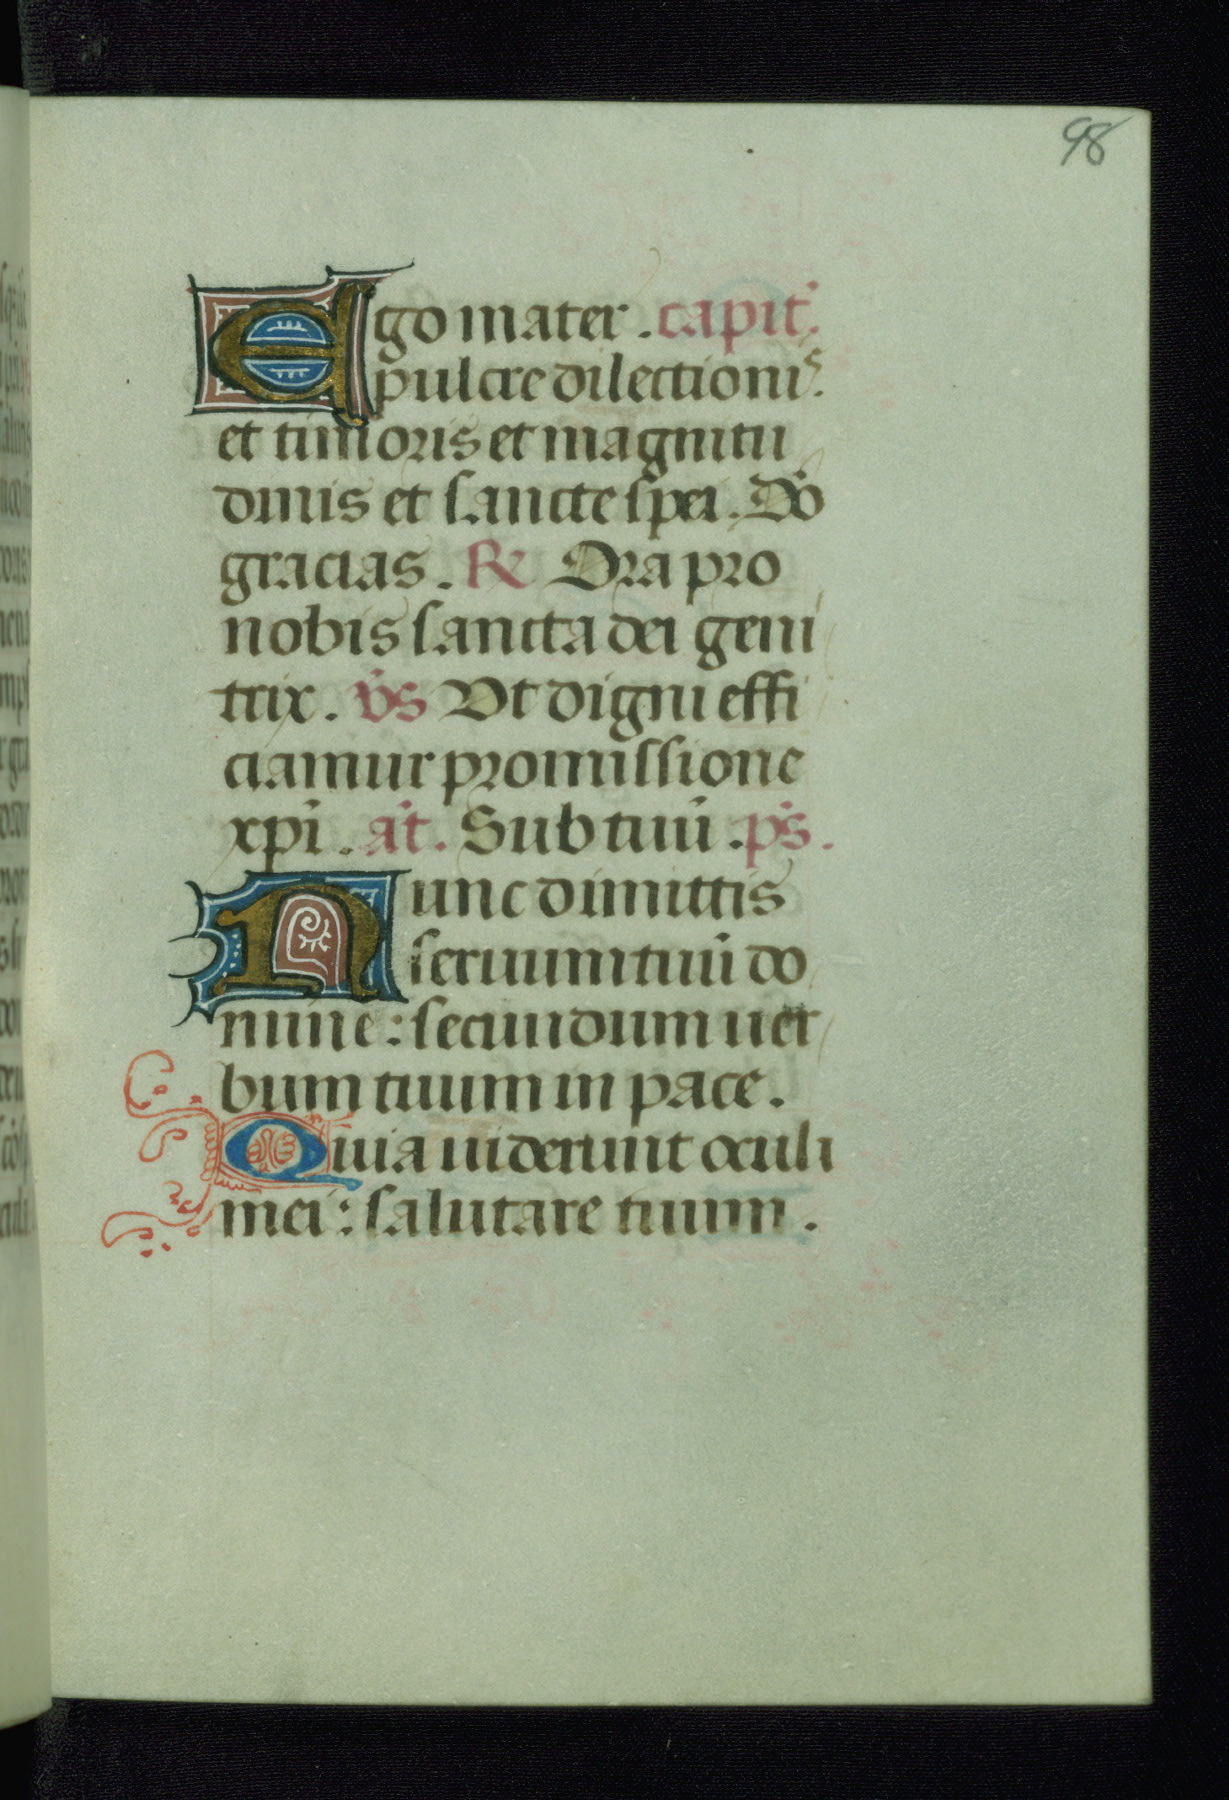 98
Ego mater . capit̉.
pulcre dilectionis.
et timoris et magnitu
dinis et sancte spei . Dõ
gracias . ℟ Ora pro
nobis sancta dei geni
trix . v̉s Vt digni effi
ciamur promissione
xp̃i . an̉t . Sub tuũ . p̉s .
Nunc dimittis
seruum tuũ do
mine : secundum uer
bum tuum in pace .
Quia uiderunt oculi
mei : salutare tuum .